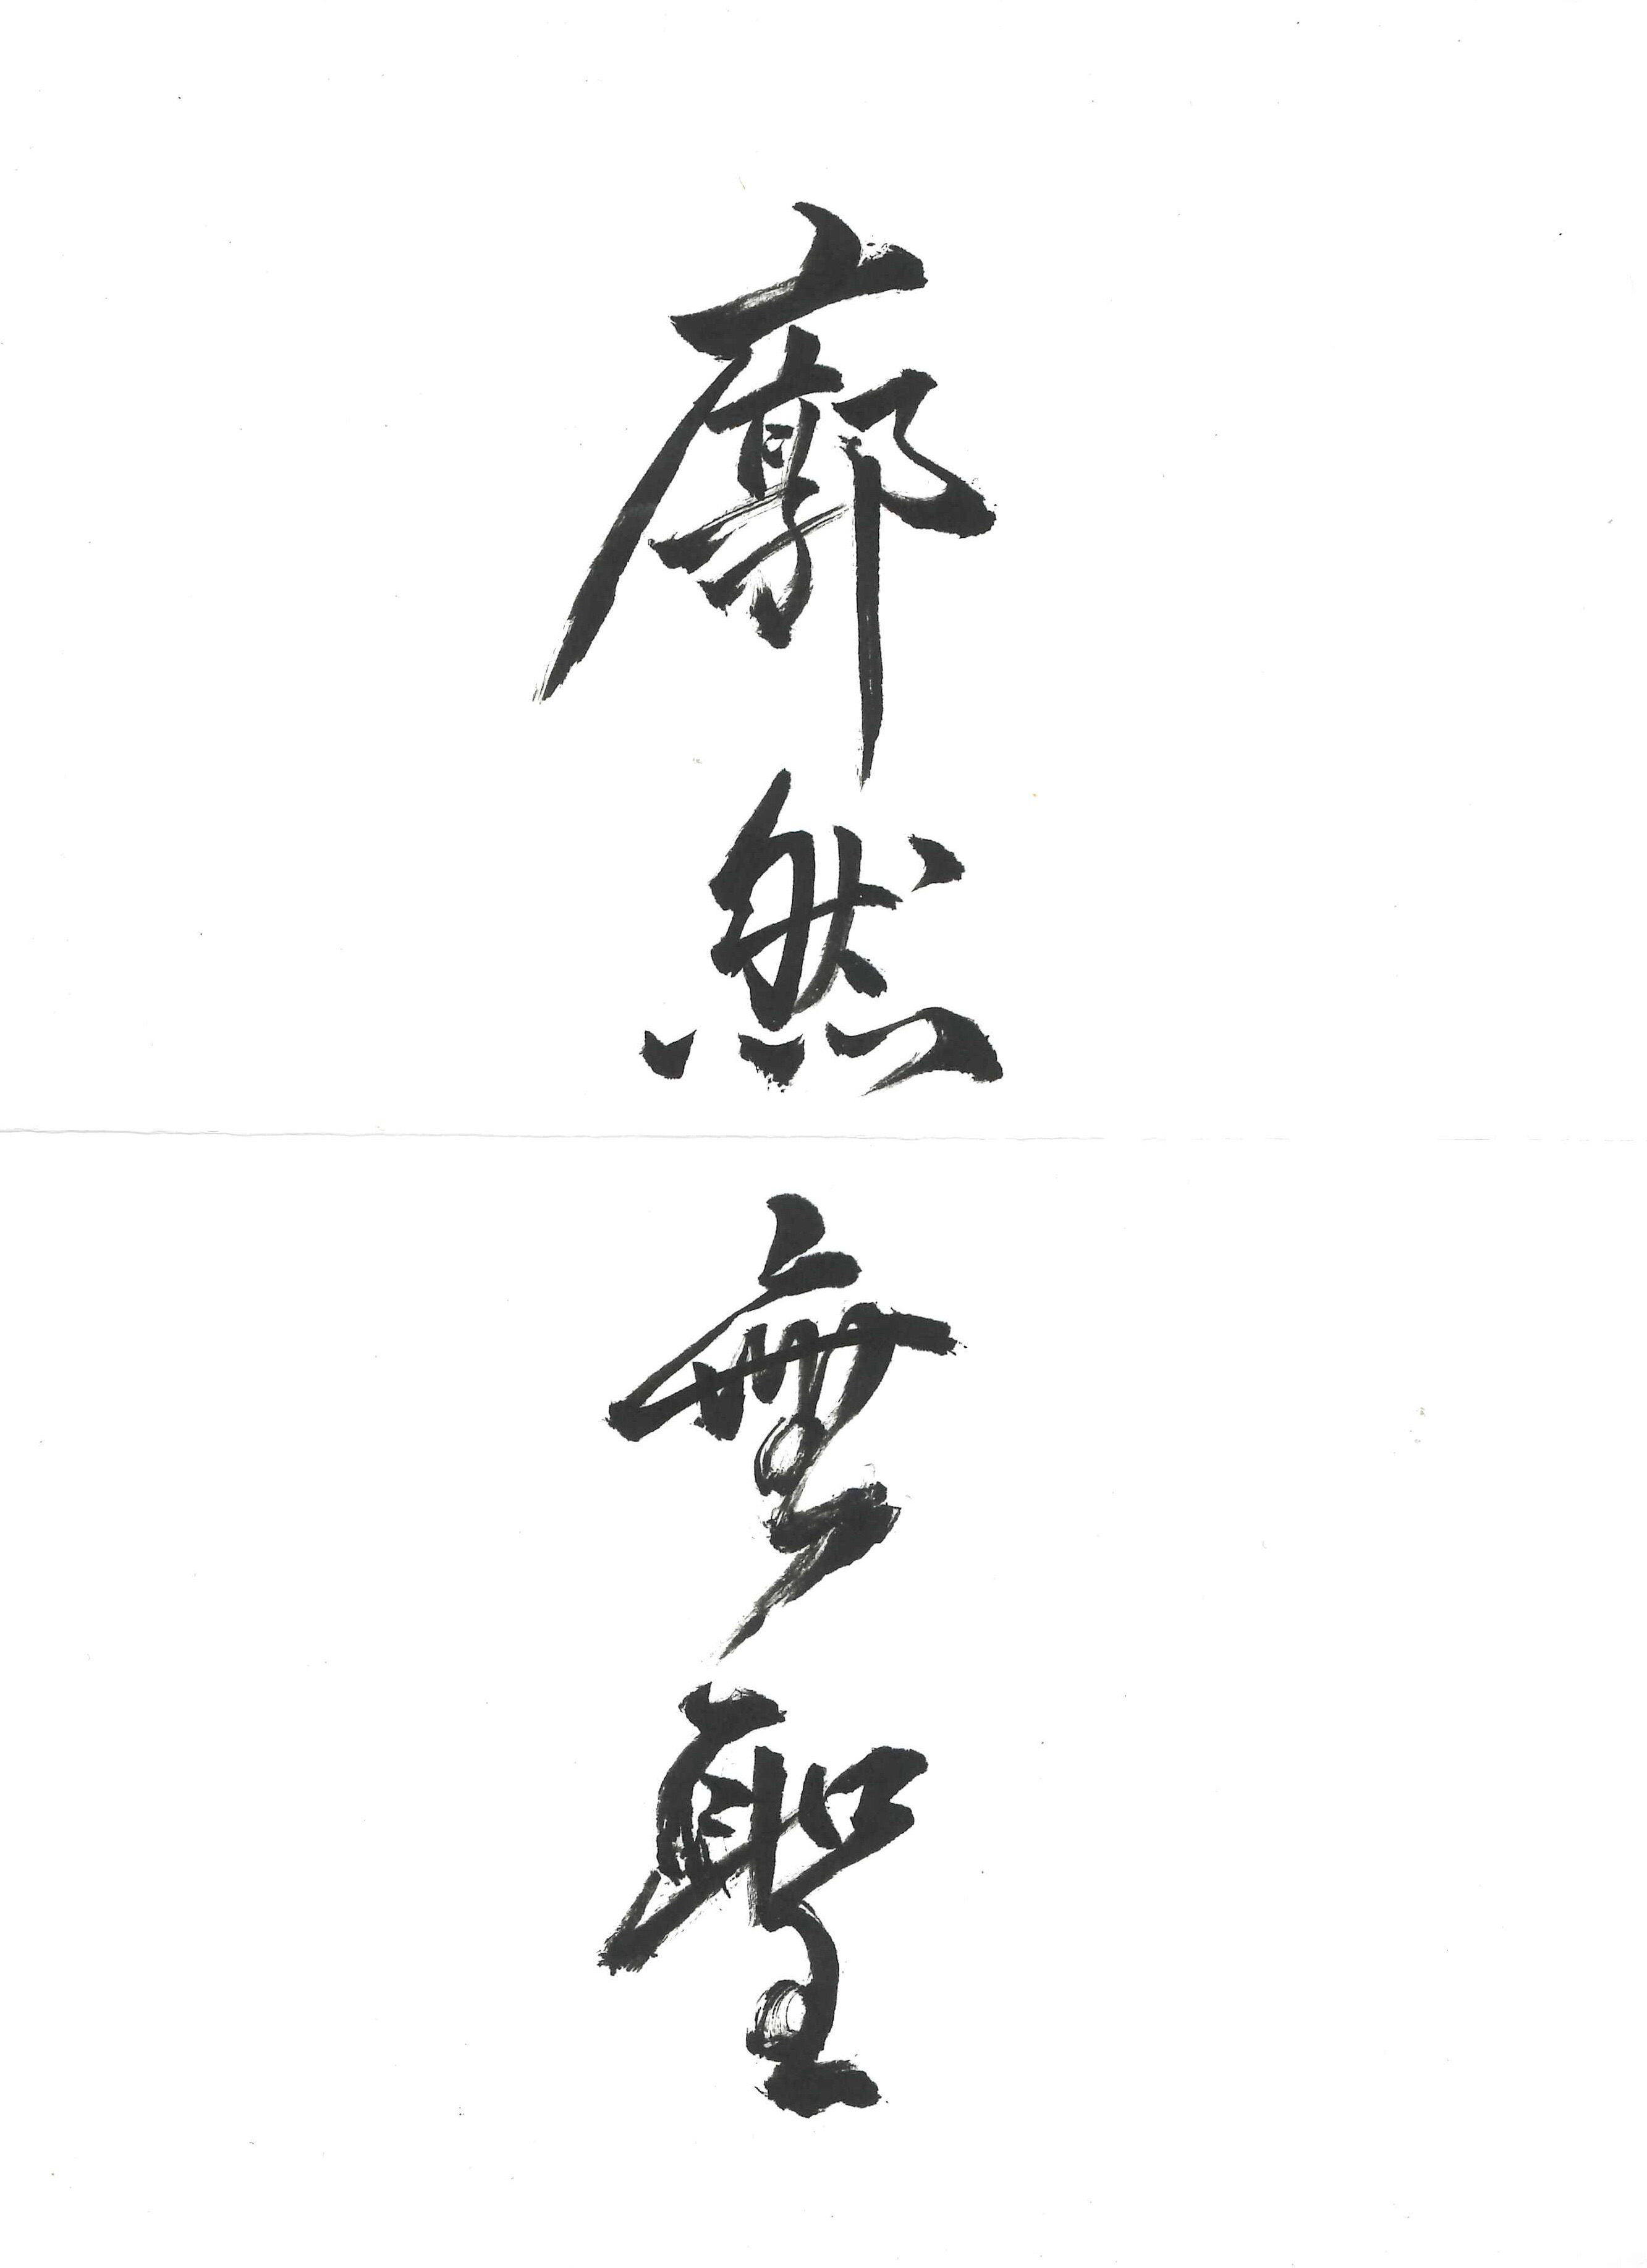 廓然無聖